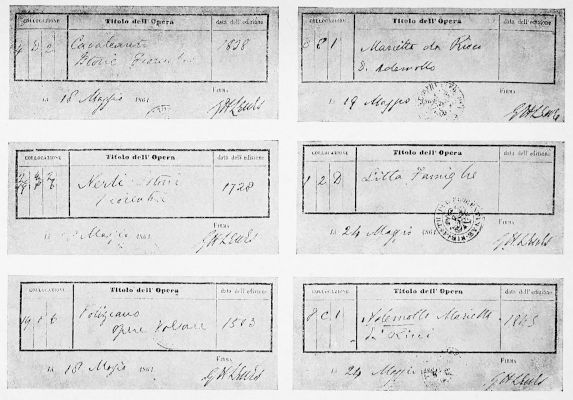 COLLOCAZIONE Titolo dell' Opera data dell'edizione
4 D 2 Cavalcanti 1838
Storie Fiorentine
FIRMA
Lì 18 Maggio 1861 G H Lewes
COLLOCAZIONE Titolo dell' Opera data dell'edizione
8 C 1 Marietta da Ricci
D. Ademollo
FIRMA
Lì 19 Maggio 1861 G H Lewes
COLLOCAZIONE Titolo dell' Opera data dell'edizione
Nerli Istorie 1728
Fiorentine
FIRMA
Maggio 1861 G H Lewes
COLLOCAZIONE Titolo dell' Opera data dell'edizione
1 2 D Litta Famiglie
FIRMA
Lì 24 Maggio 1861 G H Lewes
COLLOCAZIONE Titolo dell' Opera data dell'edizione
19 1 6 Poliziano
opere Volgare 1583
FIRMA
Lì 18 Maggio 1861 G H Lewes
COLLOCAZIONE Titolo dell' Opera data dell'edizione
8 C 1 Ademollo Marietta 1845
di Ricci
FIRMA
Lì 24 Maggio 1861 G H Lewes